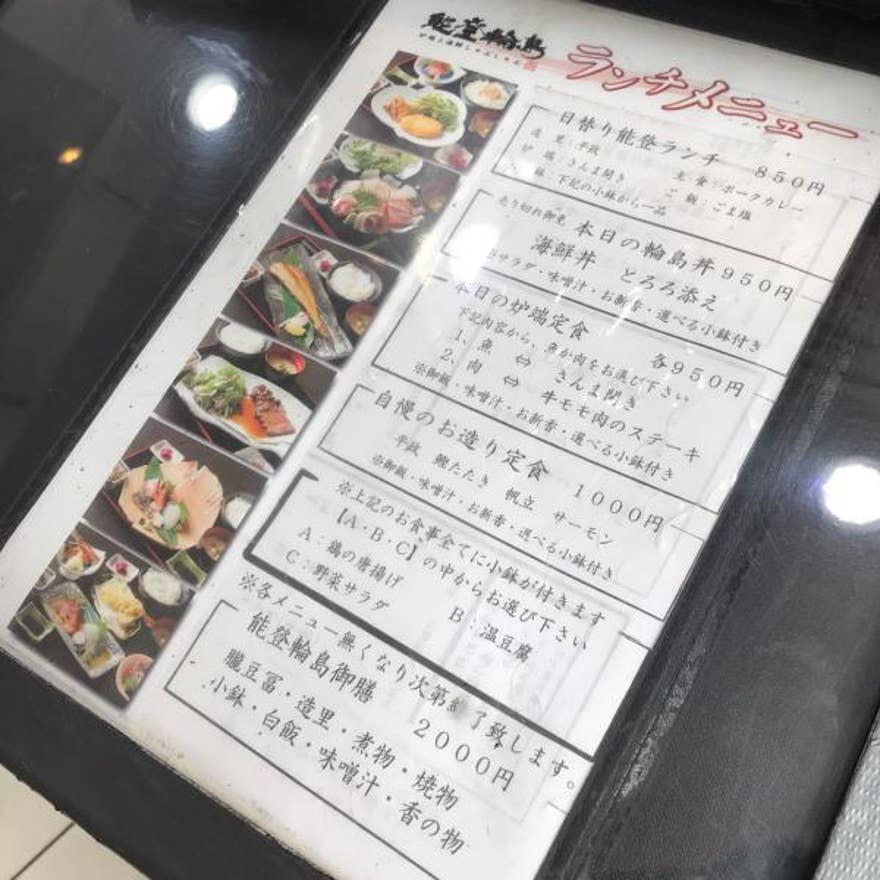 能登輪島
炉端と海鮮しゃぶしゃぶ
ランチメニュー
日替り能登ランチ 850円
造里:平政 主食:ポークカレー
炉端:さんま開き ご飯:ごま塩
鉢:下記の小鉢から一品
売り切れ御免 本日の輪島丼 950円
海鮮丼 とろろ添え
サラダ・味噌汁・お新香・選べる小鉢付き
本日の炉端定食 各950円
下記内容から、魚か肉をお選び下さい
1.魚 ⇔ さんま開き
2.肉 ⇔ 牛モモ肉のステーキ
※御飯・味噌汁・お新香・選べる小鉢付き
自慢のお造り定食 1000円
平政 鰹たたき 帆立 サーモン
※御飯・味噌汁・お新香・選べる小鉢付き
※上記のお食事全てに小鉢が付きます
【A・B・C】の中からお選び下さい
A:鶏の唐揚げ B:温豆腐
C:野菜サラダ
※各メニュー無くなり次第終了致します。
能登輪島御膳 2000円
朧豆冨・造里・煮物・焼物
小鉢・白飯・味噌汁・香の物